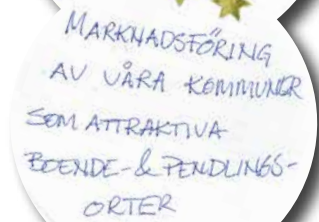 MARKNADSFÖRING
AV VÅRA KOMMUNER
SOM ATTRAKTIVA
BOENDE- & PENDLINGS-
ORTER